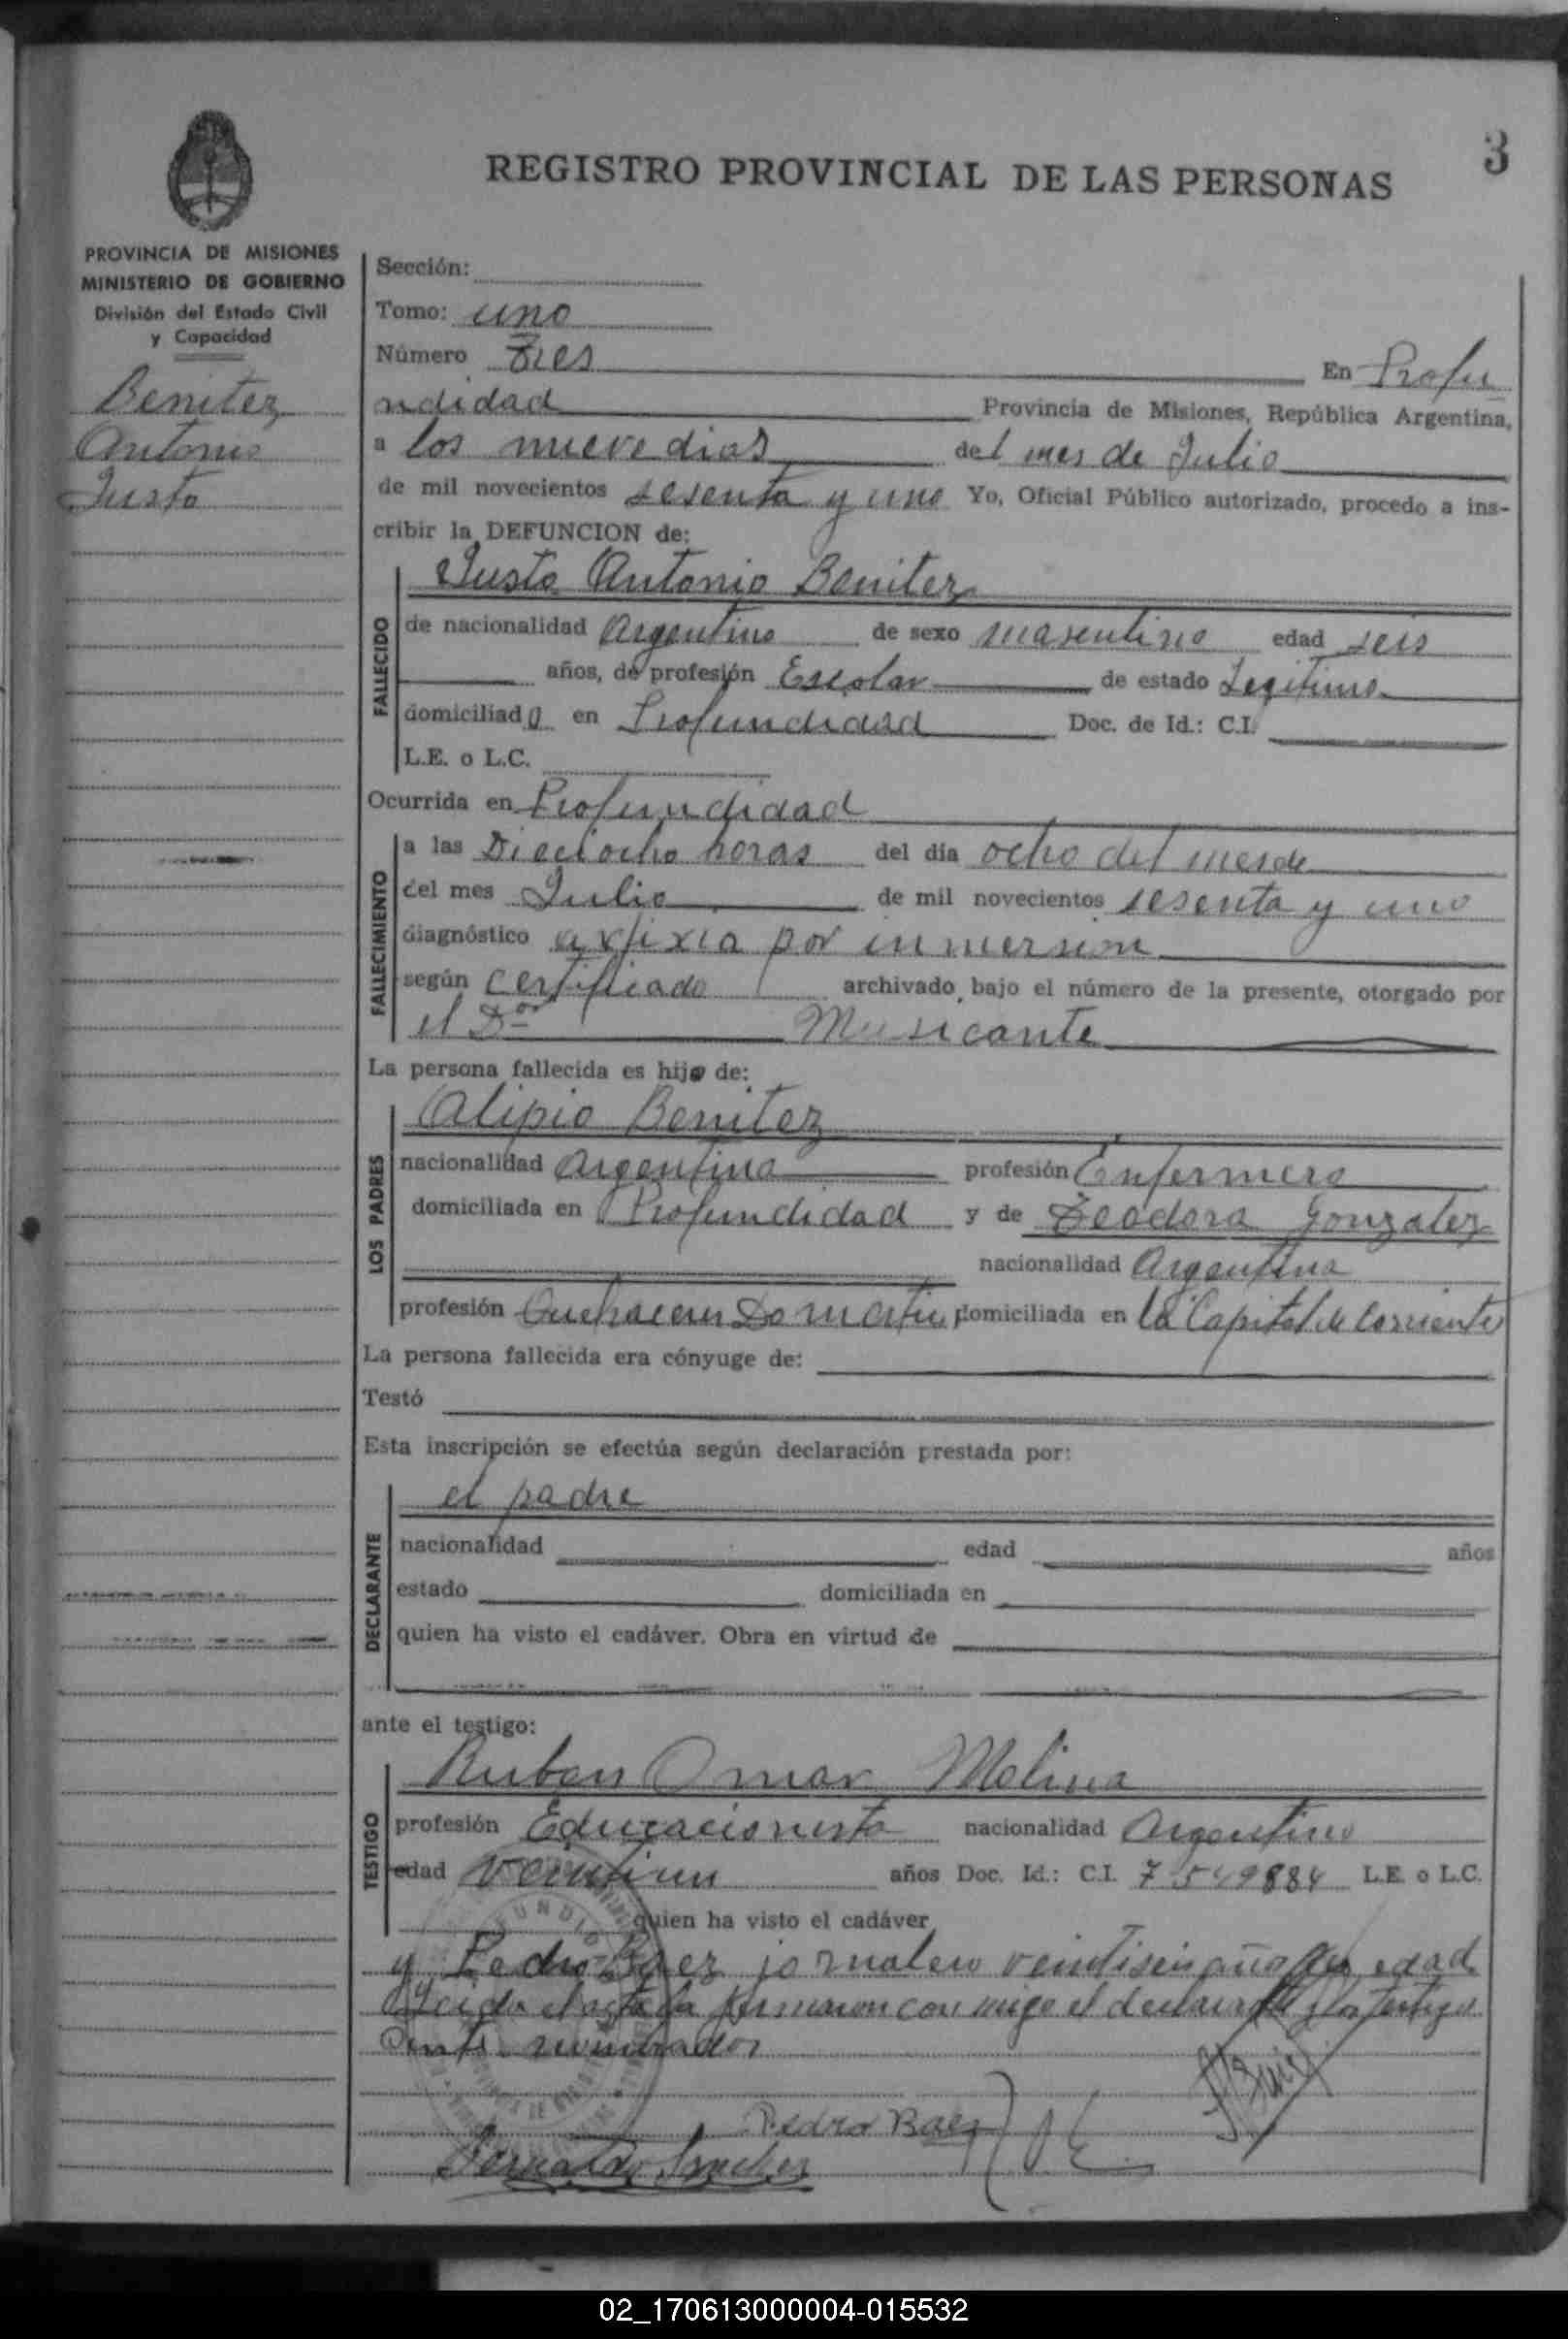 3
REGISTRO PROVINCIAL DE LAS PERSONAS
PROVINCIA DE MISIONES
MINISTERIO DE GOBIERNO
División del Estado Civil
y Capacidad
Benitez
Antonio
Justo
Sección:
Tomo: uno
Número Tres
En Profu
ndidad Provincia de Misiones, República Argentina,
a los nueve dias del mes de Julio
de mil novecientos sesenta y uno Yo, Oficial Público autorizado, procedo a ins-
cribir la DEFUNCION de:
FALLECIDO
Justo Antonio Benitez
de nacionalidad Argentino de sexo masculino edad seis
años, de profesión Escolar de estado Legitimo
domiciliado en Profundidad Doc. de Id.: C.I.
L.E. o L.C.
Ocurrida en Profundidad
FALLECIMIENTO
a las Dieciocho horas del dia ocho del mes de
del mes Julio de mil novecientos sesenta y uno
diagnóstico axfixia por inmersion
según certificado archivado bajo el número de la presente, otorgado por
el Dor Musicante
La persona fallecida es hijo de:
LOS PADRES
Alipio Benitez
nacionalidad Argentina profesión Enfermero
domiciliada en Profundidad y de Teodora Gonzalez
nacionalidad Argentina
profesión domiciliada en la Capital de Corriente
La persona fallecida era cónyuge de:
Testó
Esta inscripción se efectúa según declaración prestada por:
DECLARANTE
el padre
nacionalidad edad años
estado domiciliada en
quien ha visto el cadáver. Obra en virtud de
ante el testigo:
TESTIGO
Ruben Omar Molina
profesión Educacionista nacionalidad Argentino
edad veintiun años Doc. Id.: C.I. 7549884 L.E. o L.C.
quien ha visto el cadáver
y Pedro Baez jornalero veintiseis años de edad
Leida el acta la firmaron con migo el declarante y los testigos
nombrados
Pedro Baez
02_170613000004-015532